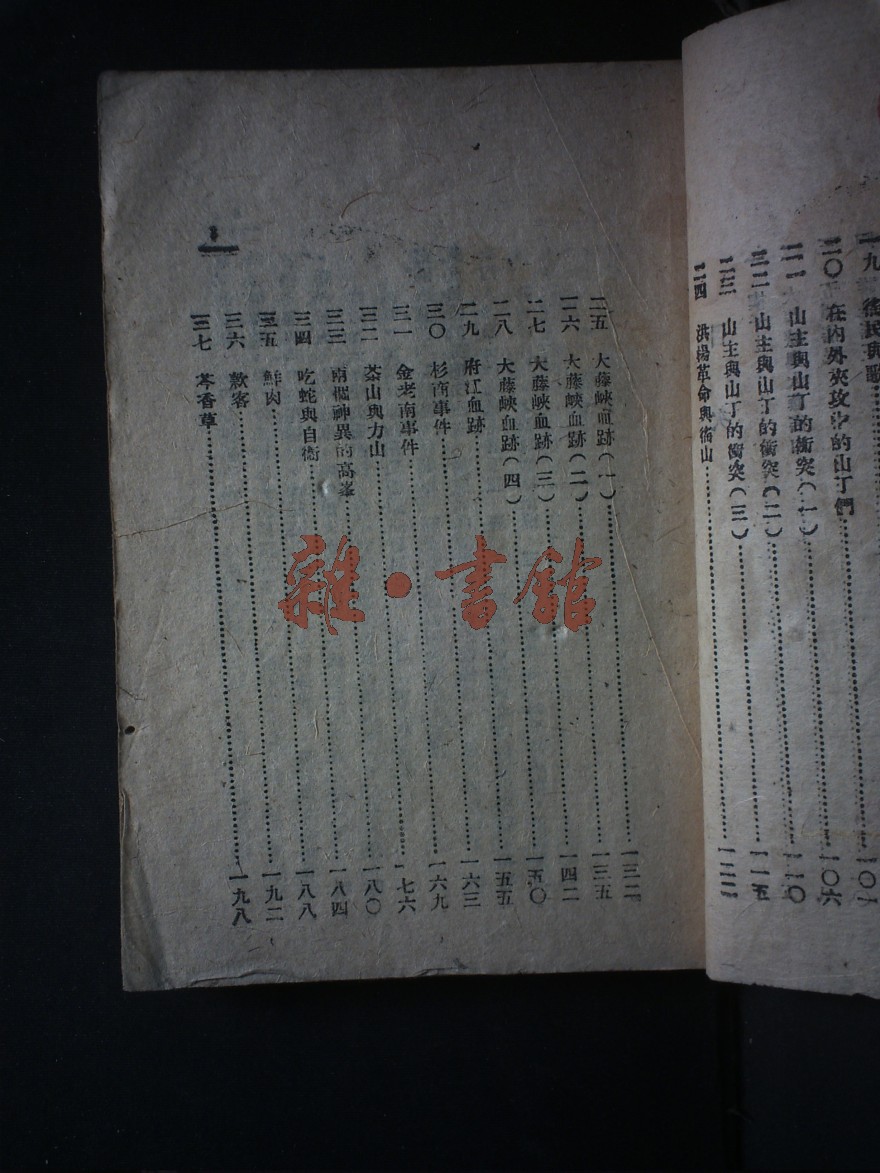 一九 徭民與歌
二〇 在內外夾攻中的山丁們……一〇一
二一 山主與山丁的衝突(一)……一〇六
二二 山主與山丁的衝突(二)……一一〇
二三 山主與山丁的衝突(三)……一一五
二四 洪楊革命與徭山……一二二
二五 大藤峽血跡(一)……一三二
二六 大藤峽血跡(二)……一三五
二七 大藤峽血跡(三)……一四二
二八 大藤峽血跡(四)……一五〇
二九 府江血跡……一五五
三〇 杉商事件……一六三
三一 金老南事件……一六九
三二 茶山與力山……一七六
三三 兩樁神異的高峯……一八〇
三四 吃蛇與自衛……一八四
三五 鮮肉……一八八
三六 欵客……一九二
三七 苓香草……一九八
雜·書館